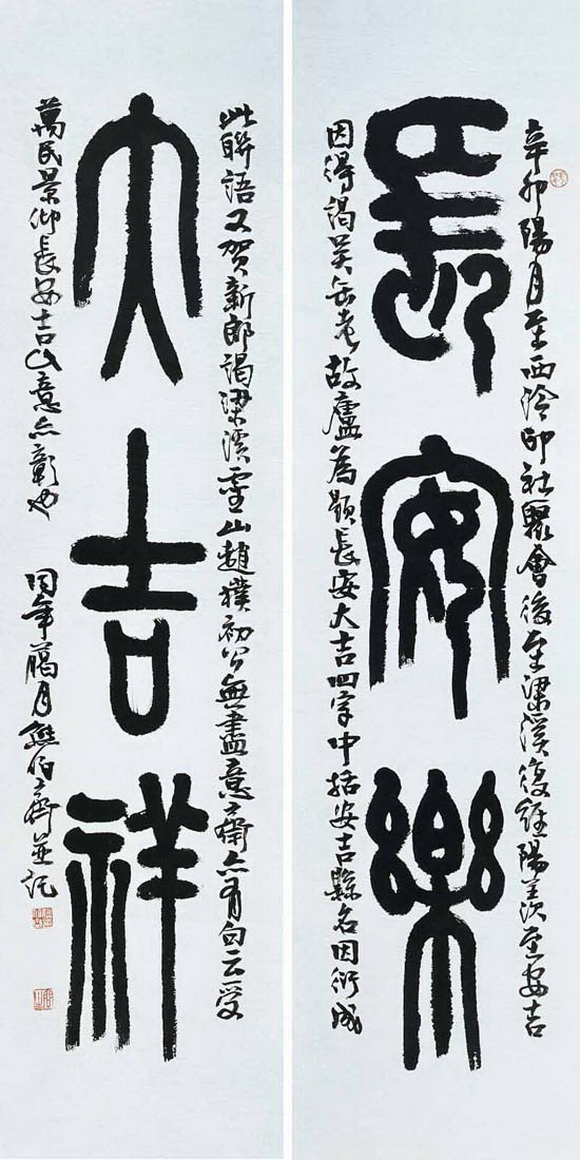 辛卯陽月至西泠印社聚會後至梁溪復經陽羨至安吉
長安樂
因得謁吳缶老故廬為題長安大吉四字中括安吉縣名因衍成
此聯語又賀新郎謁梁溪靈山趙樸初公無盡意齋亦有句云受
大吉祥
萬民景仰長安吉此意亦彰也 同年臈月熊伯齊並記